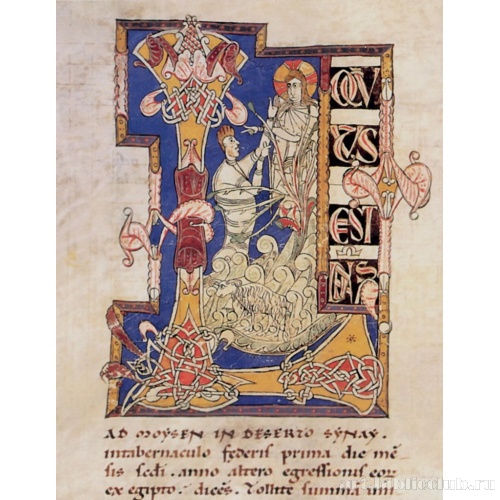 L
OQV
TUS
EST
DNS
AD MOYSEN IN DESERTO SYNAY.
intabernaculo federis prima die mē
sis scdi. anno altero egressionis eor
ex egipto. dicēs. Tollite summā